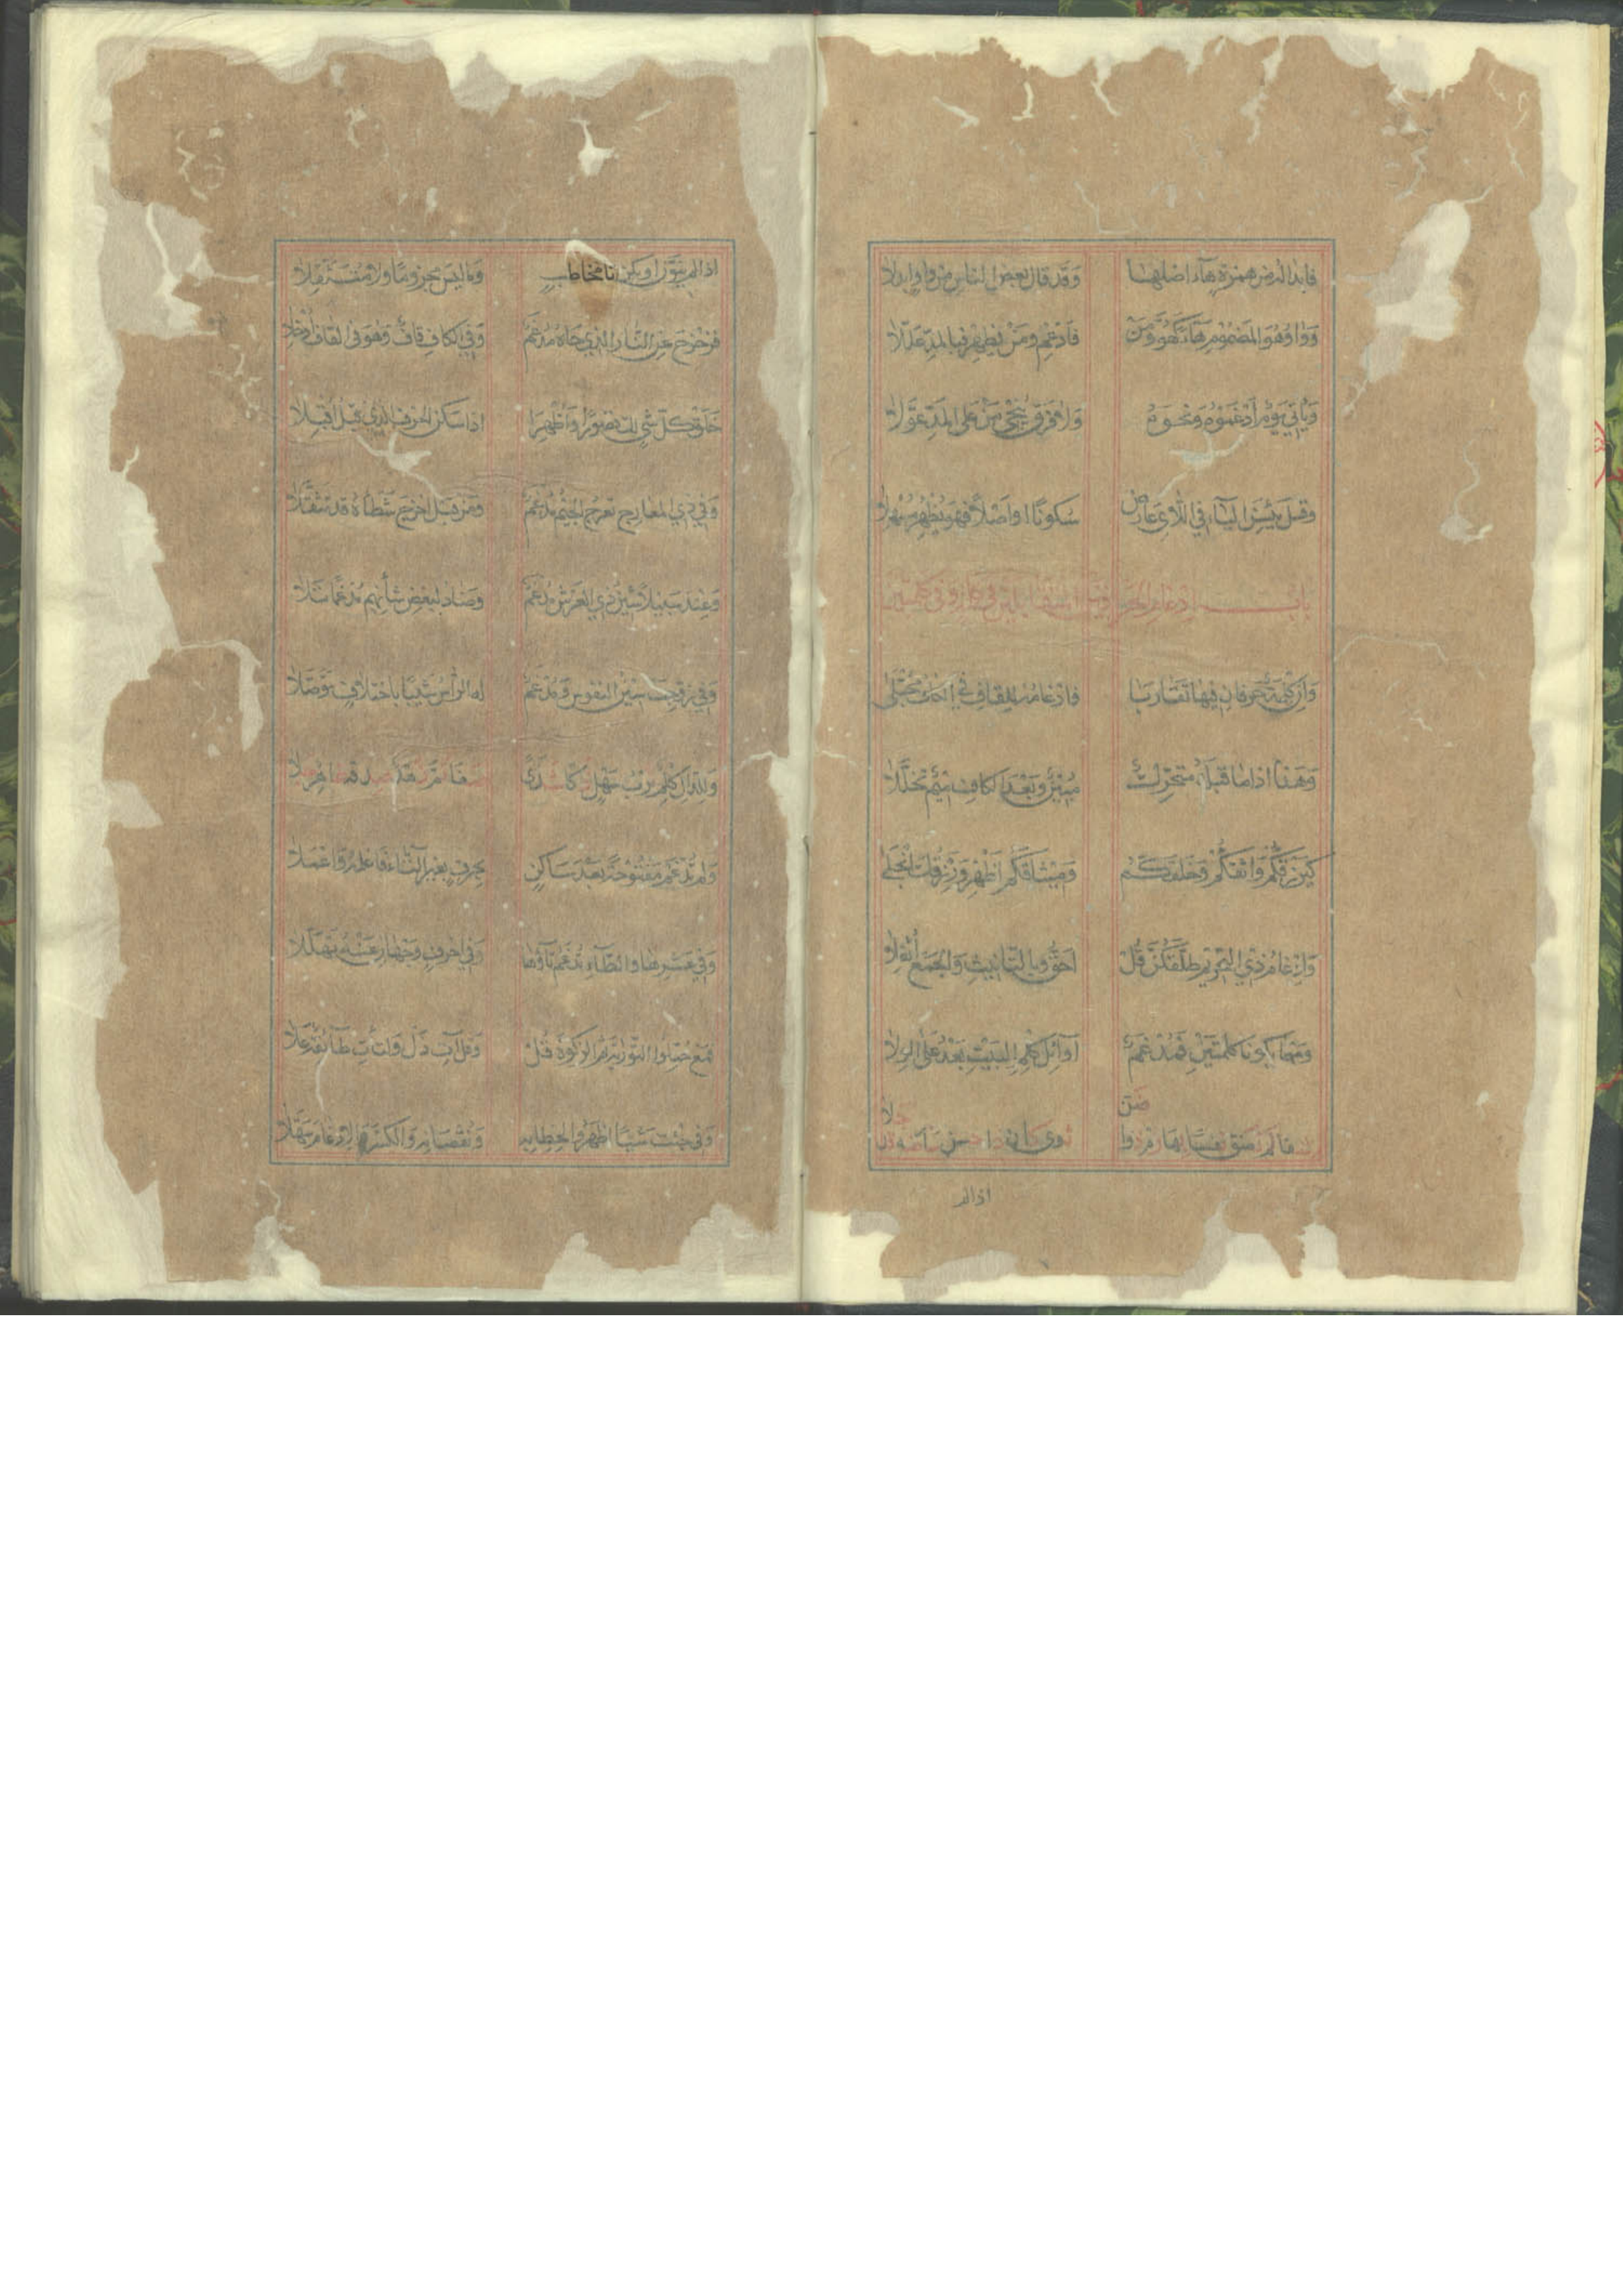 فابداله من همزة هاء اصلها وقد قال بعض الناس من واو ابدلا
وواو هو المضموم هاء كهو ومن فادغم ومن يظهر فبالمد عللا
وياتي يوم ادغموه ونحوه ولا فرق ينجي من على المد عولا
وقبل يئسن الياء في اللاى عارض سكونا او اصلا فهو يظهر مسهلا
باب ادغام الحرفين المتقاربين في كلمة وفي كلمتين
وان كلمة حرفان فيها تقاربا فادغامه للقاف في الكاف مجتلى
وهذا اذا ما قبله متحرك مبين وبعد الكاف ميم تخللا
كيرزقكم واثقكم وخلقكم وميثاقكم اظهر ونرزقك انجلى
وادغام ذي التحريم طلقكن قل احق وبالتانيث والجمع اثقلا
ومهما يكونا كلمتين فمدغم اوائل كلم البيت بعد على الولا
شفا لم تضق نفسا بها رم دوا ضن ثوى كان ذا حسن سأى منه قد جلا
اذا لم
اذا لم ينون او يكن تا مخاطب وما ليس مجزوما ولا متثقلا
فزحزح عن النار الذي حاه مدغم وفي الكاف قاف وهو في القاف ادخلا
خلق كل شي لك قصورا واظهرا اذا سكن الحرف الذي قبل اقبلا
وفي ذي المعارج تعرج الجيم مدغم ومن قبل اخرج شطأه قد تثقلا
وعند سبيلا شين ذي العرش مدغم وضاد لبعض شأنهم مدغما تلا
وفي زوجت سين النفوس ومدغم له الراس شيبا باختلاف توصلا
وللدال كلم ترب سهل ذكا شذا ضفا ثم زهد صدقه ظاهر جلا
ولم تدغم مفتوحة بعد ساكن بحرف بغير التاء فاعلمه واعملا
وفي عشرها والطاء تدغم تاؤها وفي احرف وجهان عنه تهللا
فمع حملوا التورية ثم الزكوة قل وقل آت ذا ل ولتأت طائفة علا
وفي جئت شيئا اظهروا لخطابه ونقصانه والكسر الادغام سهلا